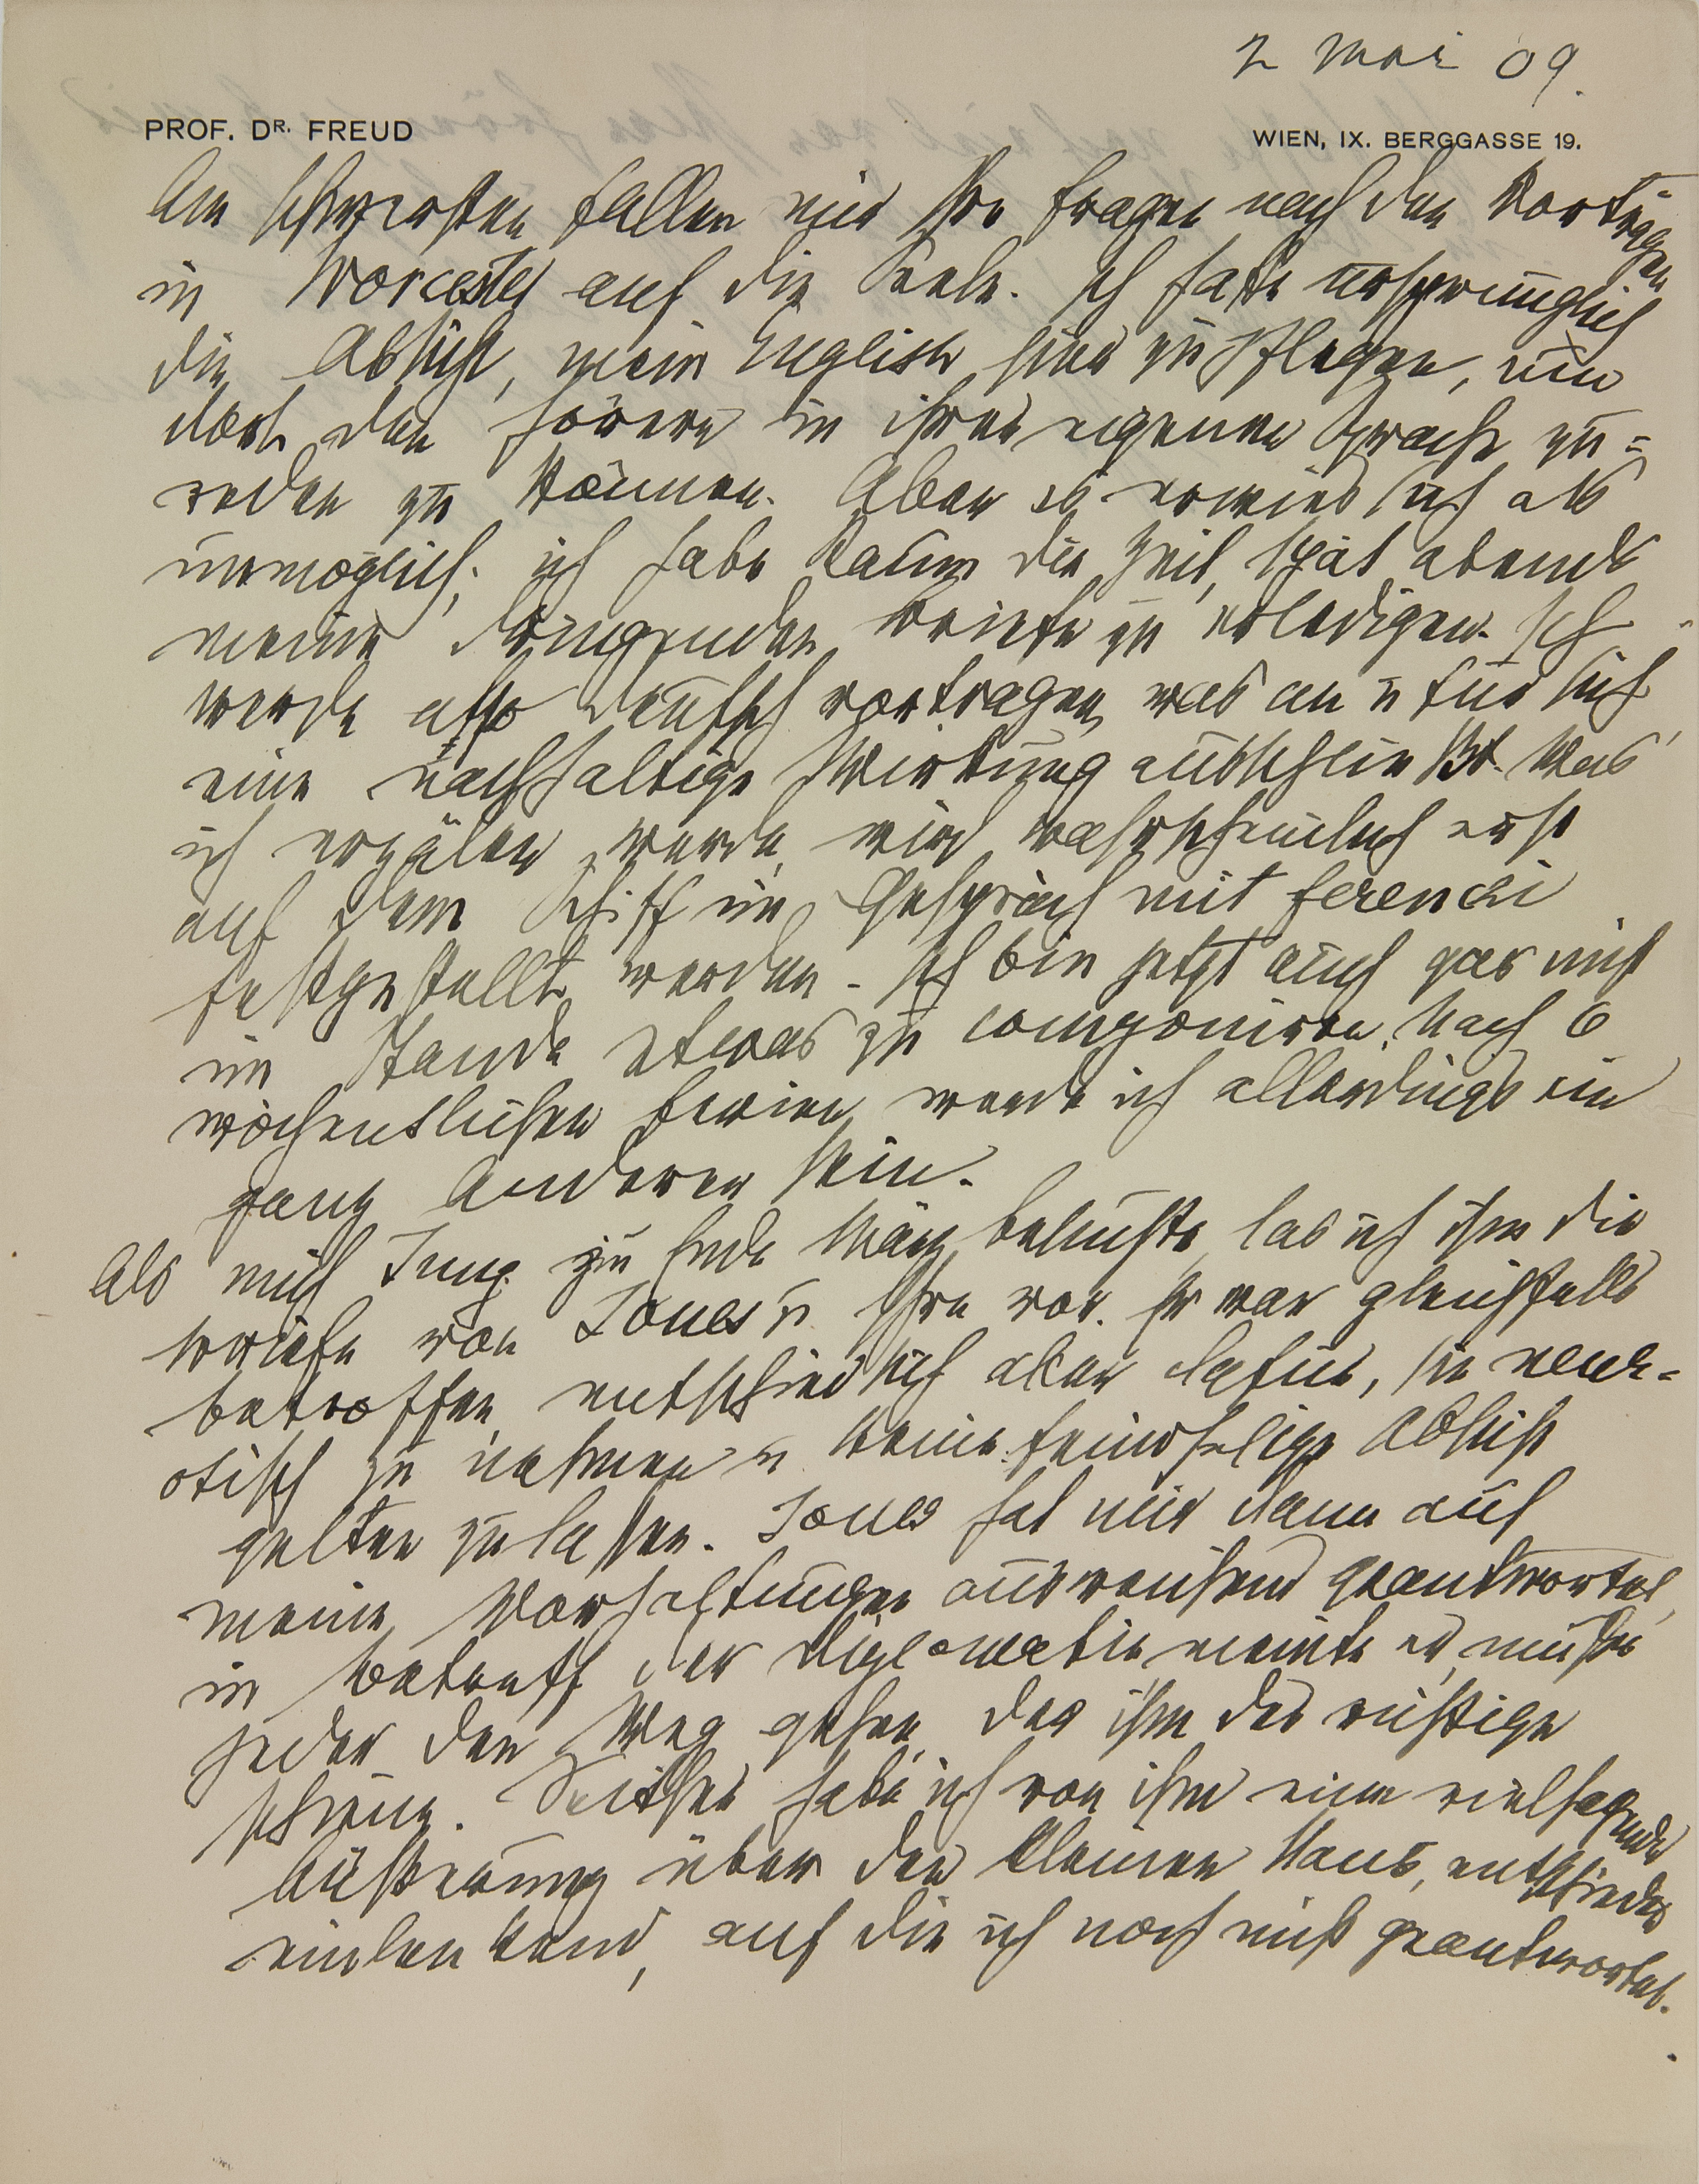 2 Mai 09.
PROF. DR. FREUD
WIEN, IX. BERGGASSE 19.
Am schwersten fallen mir Ihre Fragen nach den Vorträgen
in Worcester auf die Seele. Ich hatte ursprünglich
die Absicht, mein Englisch hier zu pflegen, um
dort den Hörern in ihrer eigenen Sprache zu=
reden zu können. Aber es erwies sich als
unmöglich; ich habe kaum die Zeit, spät abends
meine dringenden Briefe zu erledigen. Ich
werde also deutsch vortragen, was an u für sich
eine nachhaltige Wirkung ausschließt. Was
ich erzälen werde, wird wahrscheinlich erst
auf dem Schiff im Gespräch mit Ferenczi
festgestellt werden. Ich bin jetzt auch gar nicht
im Stande etwas zu componiren. Nach 6
wöchentlichen Ferien werde ich allerdings ein
ganz Anderer sein.
Als mich Jung zu Ende März besuchte, las ich ihm die
Briefe von Jones u Ihre vor. Er war gleichfalls
betroffen, entschied sich aber dafür, sie neur=
otisch zu nehmen u keine feindselige Absicht
gelten zu lassen. Jones hat mir dann auf
meine Vorhaltungen ausweichend geantwortet,
in Betreff der Diplomatie meinte er, müßte
jeder den Weg gehen, der ihm der richtige
schiene. Seither habe ich von ihm eine vielsagende
Äußerung über den kleinen Hans, entschieden
einlenkend, auf die ich noch nicht geantwortet.